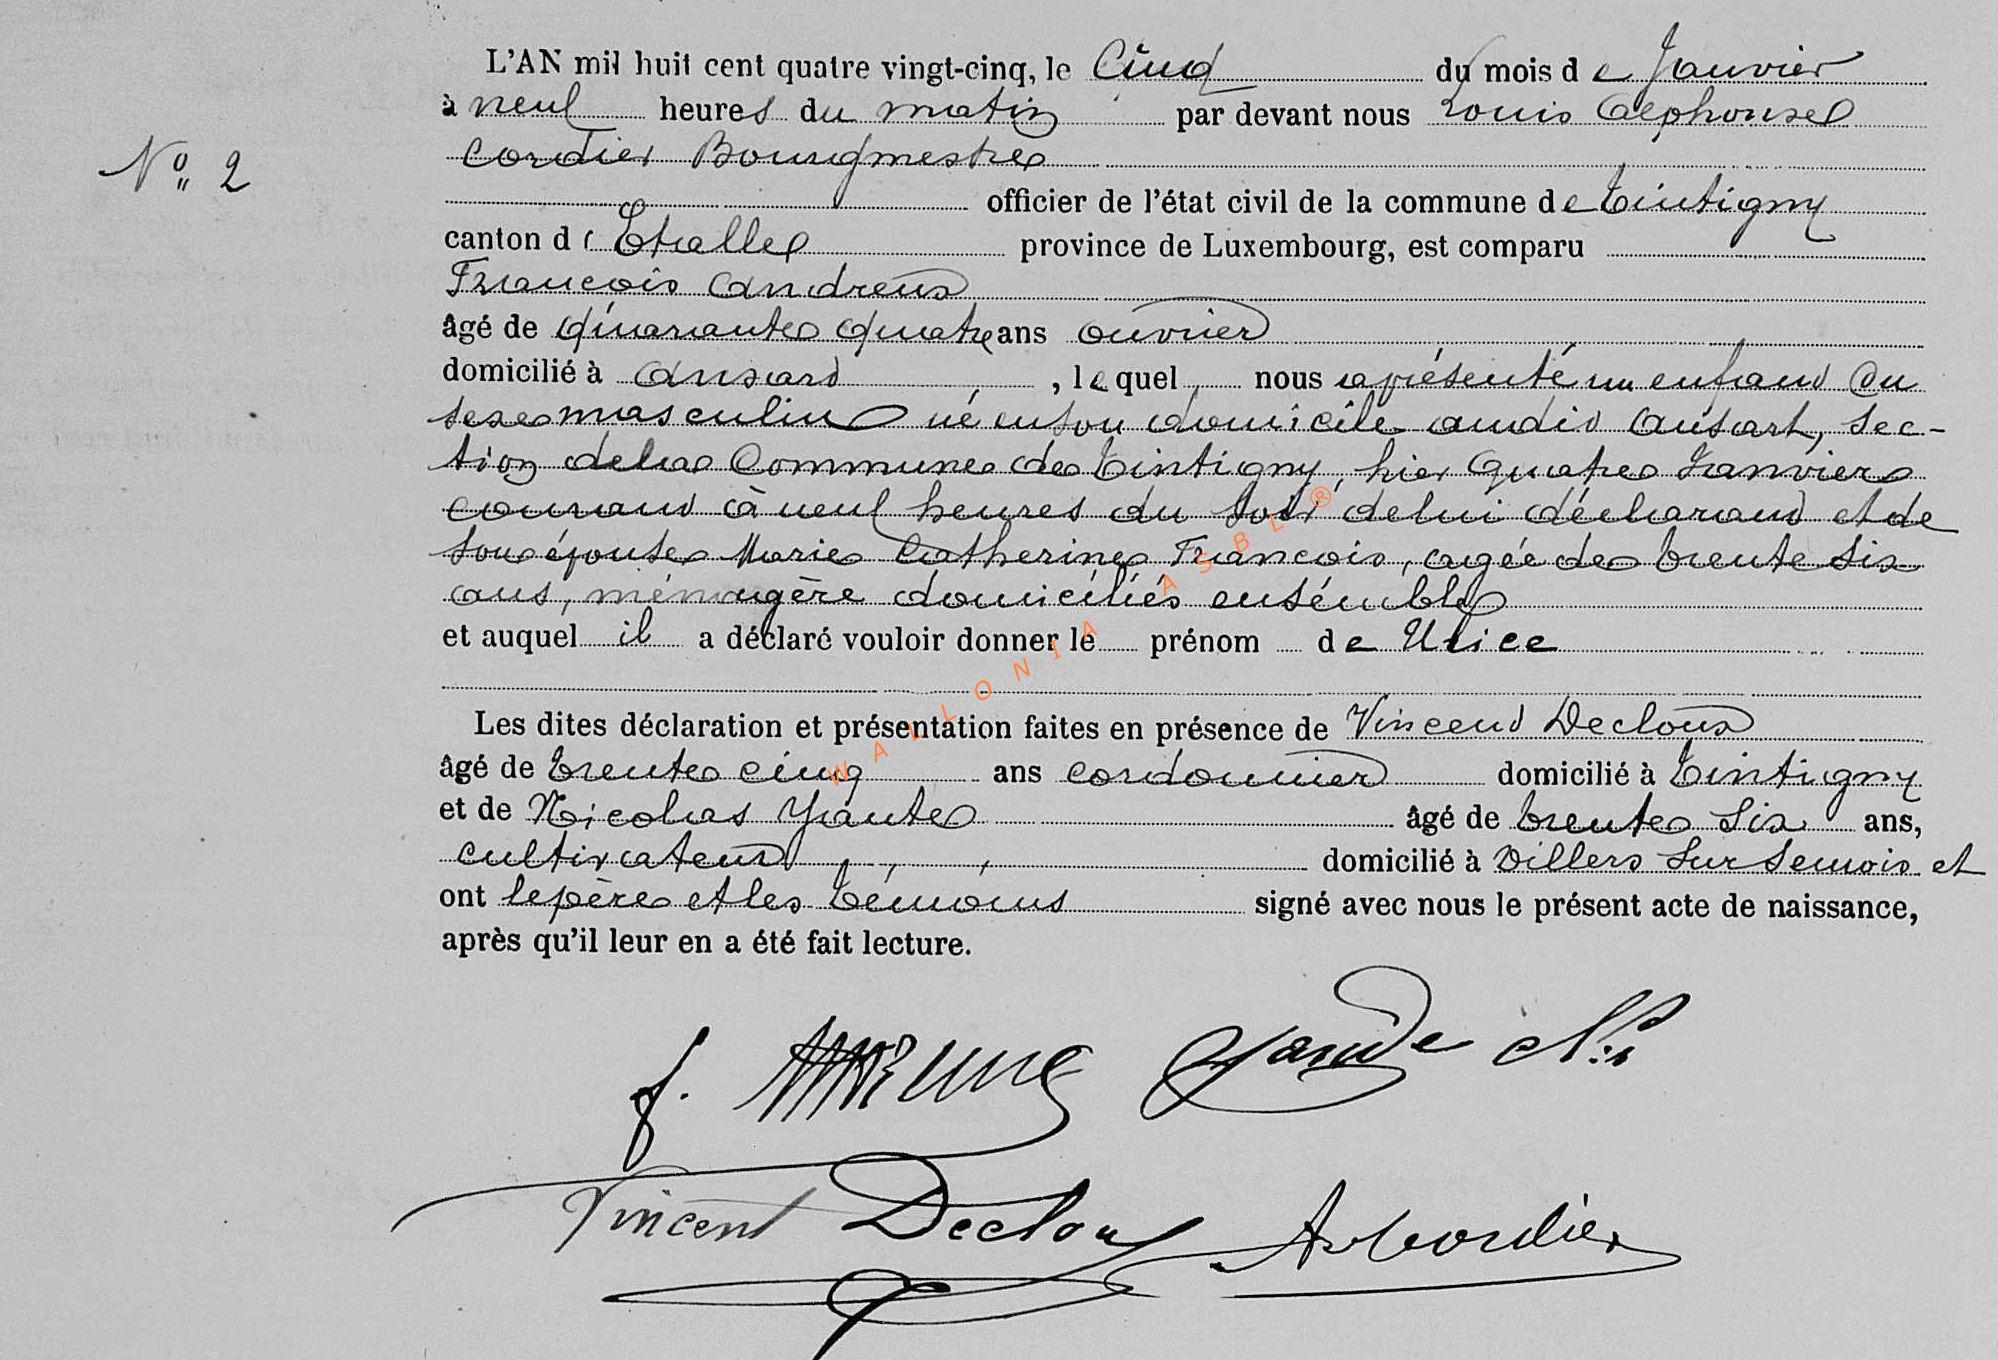 L'AN mil huit cent quatre vingt-cinq, le Cinq du mois de Janvier
à neuf heures du matin par devant nous Louis Alphonse
N° 2
Cordier Bourgmestre
officier de l'état civil de la commune de Tintigny
canton de Etalle province de Luxembourg, est comparu
François Andreux
âgé de quarante quatre ans ouvrier
domicilié à Ansart, lequel nous a présenté un enfant du
sexe masculin né en son domicile audit Ansart, sec-
tion de la Commune de Tintigny, hier quatre Janvier
courant à neuf heures du soir de lui déclarant et de
son épouse Marie Catherine François, agée de trente six
ans, ménagère domiciliés ensemble
et auquel il a déclaré vouloir donner le prénom de Ulice
Les dites déclaration et présentation faites en présence de Vincent Decloux
âgé de trente cinq ans cordonnier domicilié à Tintigny
et de Nicolas Yante âgé de trente six ans,
cultivateur domicilié à Villers sur Semois et
ont le père et les témoins signé avec nous le présent acte de naissance,
après qu'il leur en a été fait lecture.
WALLONIA ASBL ®
f. Yande Nic
Vincent Decloux A Cordier